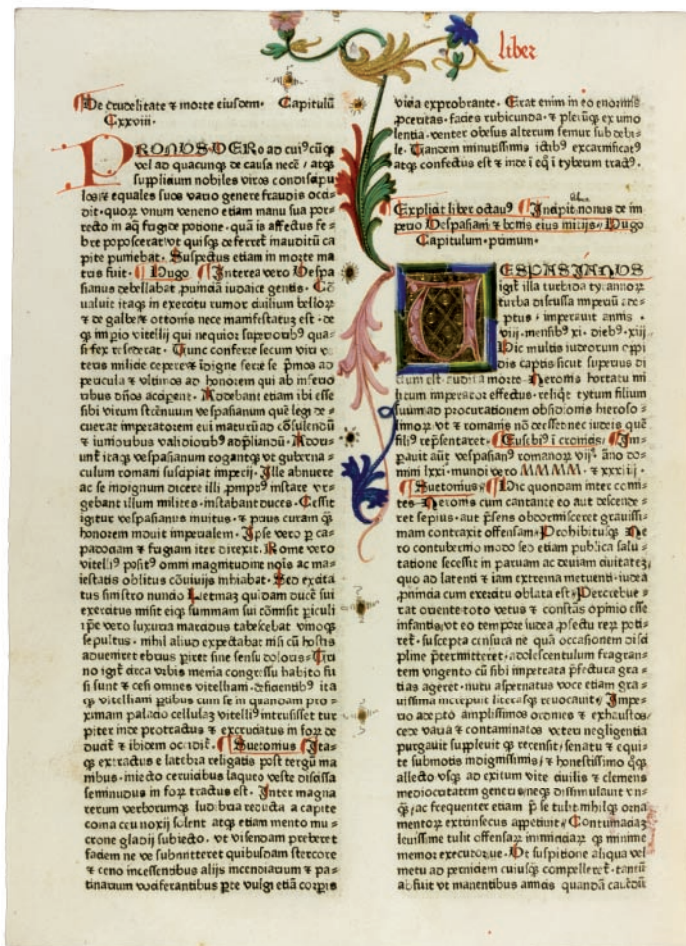 liber
De crudelitate ⁊ morte eiusdem. Capitulū
Cxxviii.
PRONUS vero ad cuiꝰcūqꝫ
vel ad quacunqꝫ de causa necē / atqꝫ
supplicium nobiles viros condiscipu
los ⁊ equales suos vario genere fraudis occi
dit. quoꝝ vnum veneno etiam manu sua por-
recto in aq̄ frigide potione. quā is affectus fe-
bre poposcerat
pite puniebat. Suspectus etiam in morte ma
tris fuit. Hugo Interea vero Vespa
sianus debellabat ꝓuinciā iudaice gentis. Cō
ualuit itaqꝫ in exercitu rumor ciuilium belloꝝ
⁊ de galbe ⁊ ottonis nece manifestatuꝫ est. de
qꝫ imꝑio vitellij qui nequior superioribꝰ qua-
si fex resederat. Tunc conferre secum viri ve
teris milicie cepere ⁊ īdigne ferre se ꝓmos ad
pericula ⁊ vltimos ad honorem
Addebant etiam ibi esse
sibi virum strēnuum vespasianum
cuerat imperatorem eui maturū ad cōsulendū
⁊ iunioribus validiorē ad p̄liandū. Adori-
unt̄ itaqꝫ vespasianum rogantqꝫ vt guberna-
culum romani suscipiat imperij. Ille abnuere
ac se indignum dicere illi
gebant illum milites. instabant duces. Cessit
igitur vespasianus inuitus. ⁊ prius curam qꝫ
honorem induit imperialem. Ipse vero ꝑ ca-
padociam ⁊ frigiam iter direxit. Rome vero
vitelliꝰ positꝰ omni magnitudine noīs ac ma-
iestatis oblitus cōuiuijs inhiabat. Sed excita
tus sinistro nuncio
exercitus misit eiqꝫ summam sui cōmisit ꝑiculi
ip̄e vero luxuria marcidus tabescebat vinoqꝫ
sepultus. nihil aliud expectabat nisi cū hostis
adueniret ebrius ꝑiret sine sensu doloris.
no igit̄ circa vrbis menia congressu habito fu
si sunt ⁊ cesi omnes
ximam palacio cellulaꝫ vitelliꝰ intrusisset tur
piter inde protractus ⁊ excruciatus in foꝝ de
ducit̄ ⁊ ibidem occidit̄. Suetonius Ita-
qꝫ extractus e latebra religatis post tergū ma
nibus. iniecto ceruicibus laqueo veste discissa
seminudus in foꝝ tractus est. Inter magna
rerum verborumqꝫ ludibria reducta a capite
coma ceu noxij solent atqꝫ etiam mento mu-
crone gladij subiecto. vt visendam preberet
faciem ne ve submitteret quibusdam stercore
⁊ ceno incessentibus alijs incendiarium ⁊ pa-
tinarium vociferantibus parte vulgi etiā corꝑis
vicia exprobrante. Erat enim in eo enormis
ꝓceritas. facies rubicunda. ⁊ pleruqꝫ ex vino
lentia. venter obesus alterum femur subdebi-
le. Tandem minutissimis ictibꝰ excarnificatꝰ
atqꝫ confectus est ⁊ inde ī tyberim tractꝰ.
Explicit liber octauꝰ Incipit nonus de im
perio Vespasiani ⁊ bonis eius initijs. Hugo
Capitulum primum.
VESPASIANUS
igit̄ illa turbida tyrannoꝝ
turba discussa imperiū ade-
ptus. imperauit annis
viij. mensibꝰ xi. diebꝰ xij
Hic multis iudeorum oppi
dis captis sicut superius di
ctum est audita morte Neronis hortatu mi
litum imperator effectus. reliq̄t tytum filium
suum ad procurationem obsidionis hieroso-
limoꝝ vt ⁊ romanis nō deesset nec iudeis
filiꝰ rep̄sentaret. Eusebiꝰ ī cronicis Im-
ꝑauit aūt vespasianꝰ romanoꝝ vijꝰ. āno do-
mini lxxi. mundi vero MMMM. ⁊ xxxiiij.
Suetonius Hic quondam inter comi-
tes Neronis cum cantante eo aut discede-
ret sepius. aut p̄sens obdormisceret grauissi-
mam contraxit offensam. Prohibitusqꝫ
ro contubernio modo sed etiam publica salu-
tatione secessit in paruam ac deuiam ciuitateꝫ
quo ad latenti ⁊ iam extrema metuenti. iudea
ꝓuincia cum exercitu oblata est. Percrebue-
rat oriente toto vetus ⁊ constās opinio esse
in fatis. vt eo tempore iudea ꝓfecti reꝝ poti-
rent̄. suscepta censura ne quā occasionem disci
pline p̄termitteret. adolescentulum fragran-
tem vngento cū sibi impetrata p̄fectura gra-
tias ageret. nutu aspernatus voce etiam gra-
uissima increpuit literasqꝫ reuocauit. Impe-
rio adepto amplissimos ordines ⁊ exhaustos
cede varia ⁊ contaminatos veteri negligentia
purgauit suppleuit qꝫ recensit. senatu ⁊ equi-
te submotis indignissimis. ⁊ honestissimo q̄qꝫ
allecto vsqꝫ ad exitum vite ciuilis ⁊ clemens
mediocritatem generis neqꝫ dissimulauit vn-
qꝫ. ac frequenter etiam p̄ se tulit nihilqꝫ orna
mentoꝝ extrinsecus appetiuit. Contumacias
leuissime tulit offensaꝝ inimiciaꝝ qꝫ minime
memor executorue. Vt suspitione aliqua vel
metu ad perniciem cuiusqꝫ compelleret̄. tantū
abfuit vt monentibus amicis quandā cauēdū